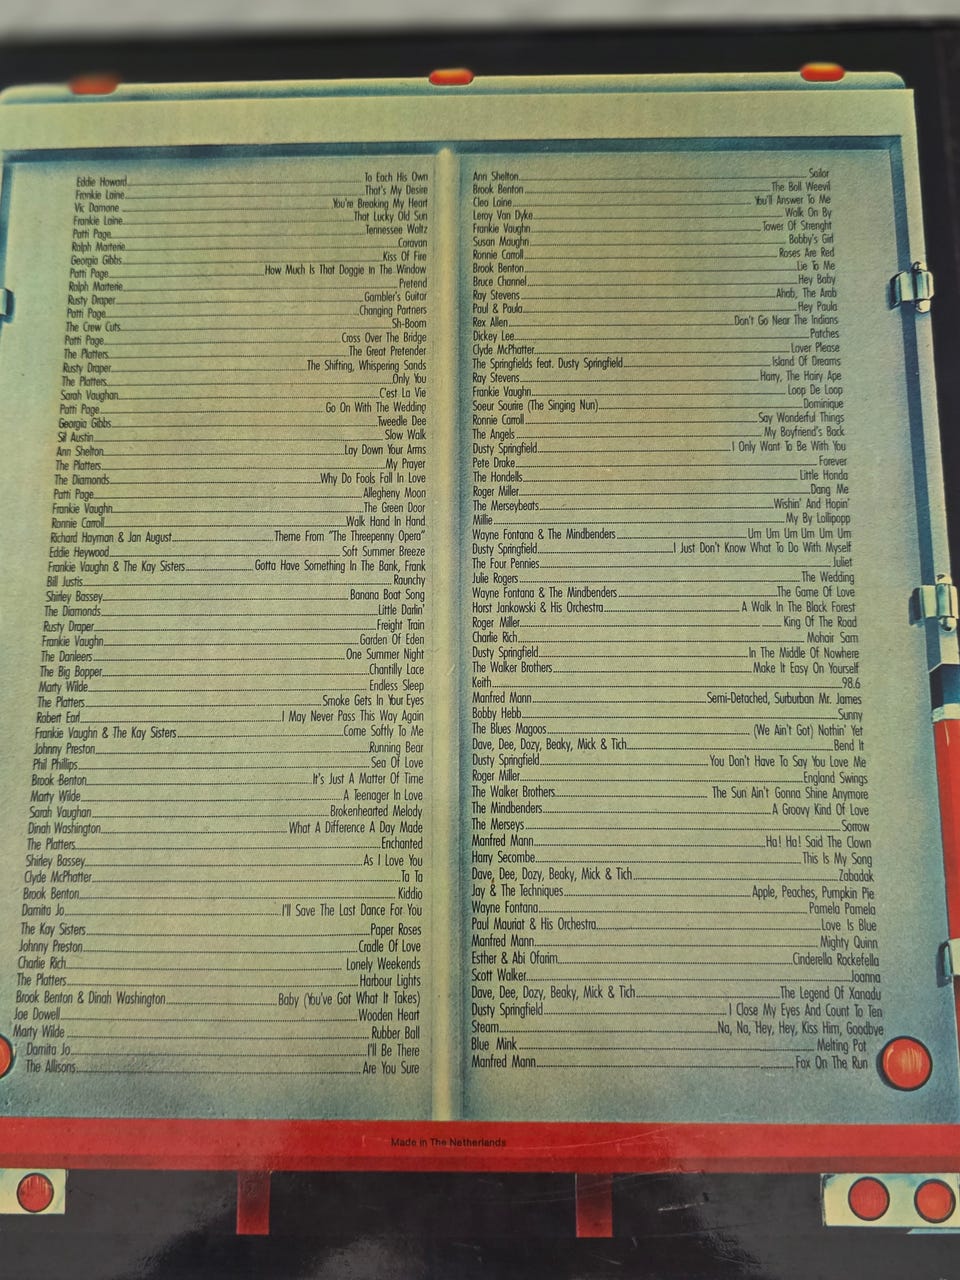 Eddie Howard To Each His Own
Frankie Laine That's My Desire
Vic Damone You're Breaking My Heart
Frankie Laine That Lucky Old Sun
Patti Page Tennessee Waltz
Ralph Marterie Caravan
Georgia Gibbs Kiss Of Fire
Patti Page How Much Is That Doggie In The Window
Ralph Marterie Pretend
Rusty Draper Gambler's Guitar
Patti Page Changing Partners
The Crew Cuts Sh-Boom
Patti Page Cross Over The Bridge
The Platters The Great Pretender
Rusty Draper The Shifting, Whispering Sands
The Platters Only You
Sarah Vaughan C'est La Vie
Patti Page Go On With The Wedding
Georgia Gibbs Tweedle Dee
Sil Austin Slow Walk
Ann Shelton Lay Down Your Arms
The Platters My Prayer
The Diamonds Why Do Fools Fall In Love
Patti Page Allegheny Moon
Frankie Vaughn The Green Door
Ronnie Carroll Walk Hand In Hand
Richard Hayman & Jan August Theme From "The Threepenny Opera"
Eddie Heywood Soft Summer Breeze
Frankie Vaughn & The Kay Sisters Gotta Have Something In The Bank, Frank
Bill Justis Raunchy
Shirley Bassey Banana Boat Song
The Diamonds Little Darlin'
Rusty Draper Freight Train
Frankie Vaughn Garden Of Eden
The Danleers One Summer Night
The Big Bopper Chantilly Lace
Marty Wilde Endless Sleep
The Platters Smoke Gets In Your Eyes
Robert Earl I May Never Pass This Way Again
Frankie Vaughn & The Kay Sisters Come Softly To Me
Johnny Preston Running Bear
Phil Phillips Sea Of Love
Brook Benton It's Just A Matter Of Time
Marty Wilde A Teenager In Love
Sarah Vaughan Brokenhearted Melody
Dinah Washington What A Difference A Day Made
The Platters Enchanted
Shirley Bassey As I Love You
Clyde McPhatter Ta Ta
Brook Benton Kiddio
Damita Jo I'll Save The Last Dance For You
The Kay Sisters Paper Roses
Johnny Preston Cradle Of Love
Charlie Rich Lonely Weekends
The Platters Harbour Lights
Brook Benton & Dinah Washington Baby (You've Got What It Takes)
Joe Dowell Wooden Heart
Marty Wilde Rubber Ball
Damita Jo I'll Be There
The Allisons Are You Sure
Ann Shelton Sailor
Brook Benton The Boll Weevil
Cleo Laine You'll Answer To Me
Leroy Van Dyke Walk On By
Frankie Vaughn Tower Of Strenght
Susan Maughn Bobby's Girl
Ronnie Carroll Roses Are Red
Brook Benton Lie To Me
Bruce Channel Hey Baby
Ray Stevens Ahab, The Arab
Paul & Paula Hey Paula
Rex Allen Don't Go Near The Indians
Dickey Lee Patches
Clyde McPhatter Lover Please
The Springfields feat. Dusty Springfield Island Of Dreams
Ray Stevens Harry, The Hairy Ape
Frankie Vaughn Loop De Loop
Soeur Sourire (The Singing Nun) Dominique
Ronnie Carroll Say Wonderful Things
The Angels My Boyfriend's Back
Dusty Springfield I Only Want To Be With You
Pete Drake Forever
The Hondells Little Honda
Roger Miller Dang Me
The Merseybeats Wishin' And Hopin'
Millie My By Lollipopp
Wayne Fontana & The Mindbenders Um Um Um Um Um Um
Dusty Springfield I Just Don't Know What To Do With Myself
The Four Pennies Juliet
Julie Rogers The Wedding
Wayne Fontana & The Mindbenders The Game Of Love
Horst Jankowski & His Orchestra A Walk In The Black Forest
Roger Miller King Of The Road
Charlie Rich Mohair Sam
Dusty Springfield In The Middle Of Nowhere
The Walker Brothers Make It Easy On Yourself
Keith 98.6
Manfred Mann Semi-Detached, Surburban Mr. James
Bobby Hebb Sunny
The Blues Magoos (We Ain't Got) Nothin' Yet
Dave, Dee, Dozy, Beaky, Mick & Tich Bend It
Dusty Springfield You Don't Have To Say You Love Me
Roger Miller England Swings
The Walker Brothers The Sun Ain't Gonna Shine Anymore
The Mindbenders A Groovy Kind Of Love
The Merseys Sorrow
Manfred Mann Ha! Ha! Said The Clown
Harry Secombe This Is My Song
Dave, Dee, Dozy, Beaky, Mick & Tich Zabadak
Jay & The Techniques Apple, Peaches, Pumpkin Pie
Wayne Fontana Pamela Pamela
Paul Mauriat & His Orchestra Love Is Blue
Manfred Mann Mighty Quinn
Esther & Abi Ofarim Cinderella Rockefella
Scott Walker Joanna
Dave, Dee, Dozy, Beaky, Mick & Tich The Legend Of Xanadu
Dusty Springfield I Close My Eyes And Count To Ten
Steam Na, Na, Hey, Hey, Kiss Him, Goodbye
Blue Mink Melting Pot
Manfred Mann Fox On The Run
Made in The Netherlands